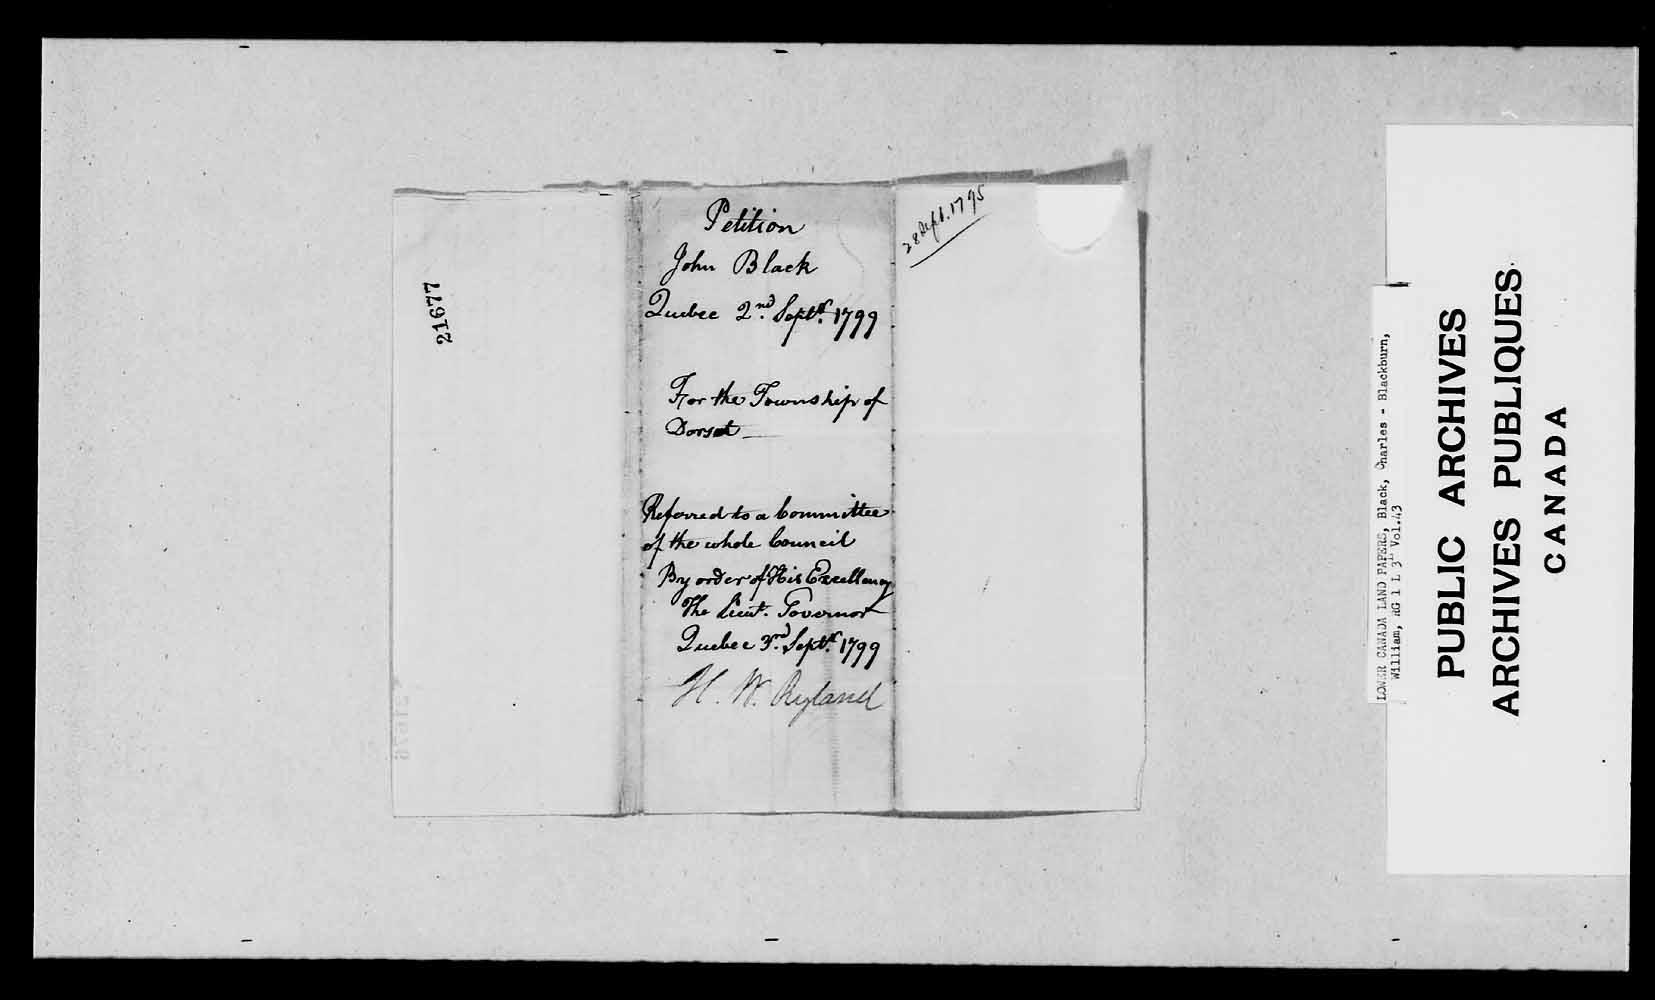 21677
Petition
John Black
Quebec 2nd. Septr. 1799
For the Township of
Dorset
Referred to a Committee
of the whole Council
By order of His Excellency
The Lieut. Governor
Quebec 3rd. Septr. 1799
H. W. Ryland
28 Sept. 1795
LOWER CANADA LAND PAPERS, Black, Charles - Blackburn,
William, RG 1 L 3L Vol.43
PUBLIC ARCHIVES
ARCHIVES PUBLIQUES
CANADA